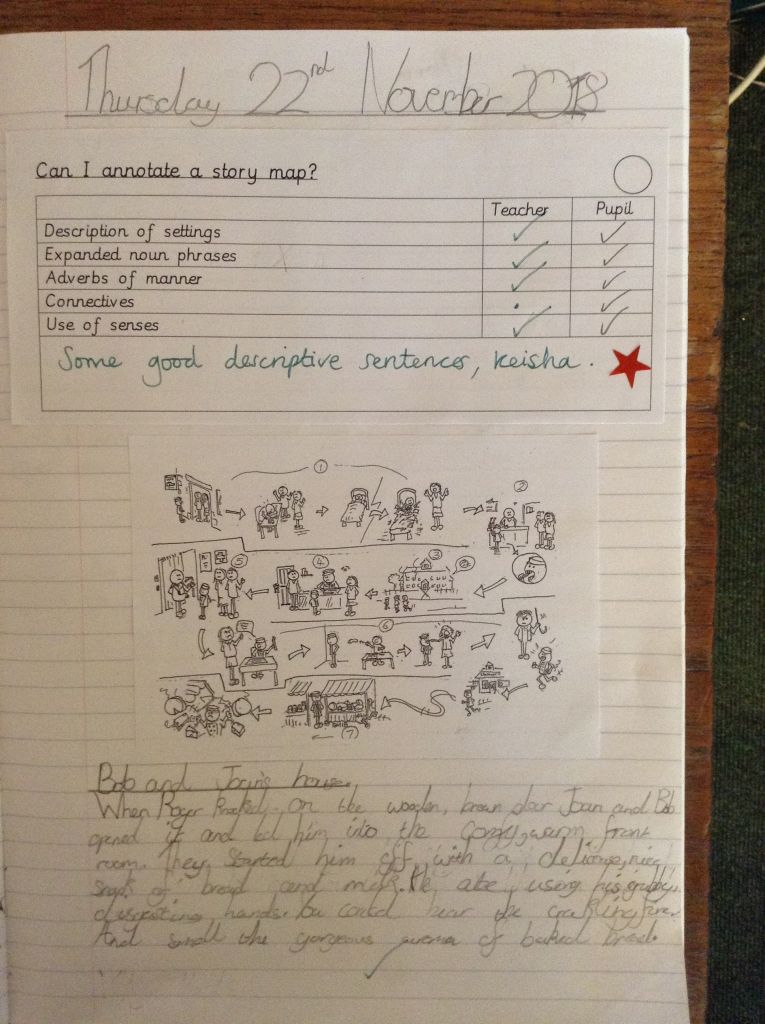 Thursday 22nd November 2018
Can I annotate a story map?
Teacher Pupil
Description of settings
Expanded noun phrases
Adverbs of manner
Connectives
Use of senses
Some good descriptive sentences, Keisha.
1
2
5 4 3
6
7
Bob and Joan's house.
When Roger knocked on the wooden, brown door Joan and Bob
opened it and led him into the warm front
room. They started him off with a nice
snack of bread and milk. He ate using his grubby,
disgusting hands. You could hear the fire.
And smell the gorgeous of baked bread.